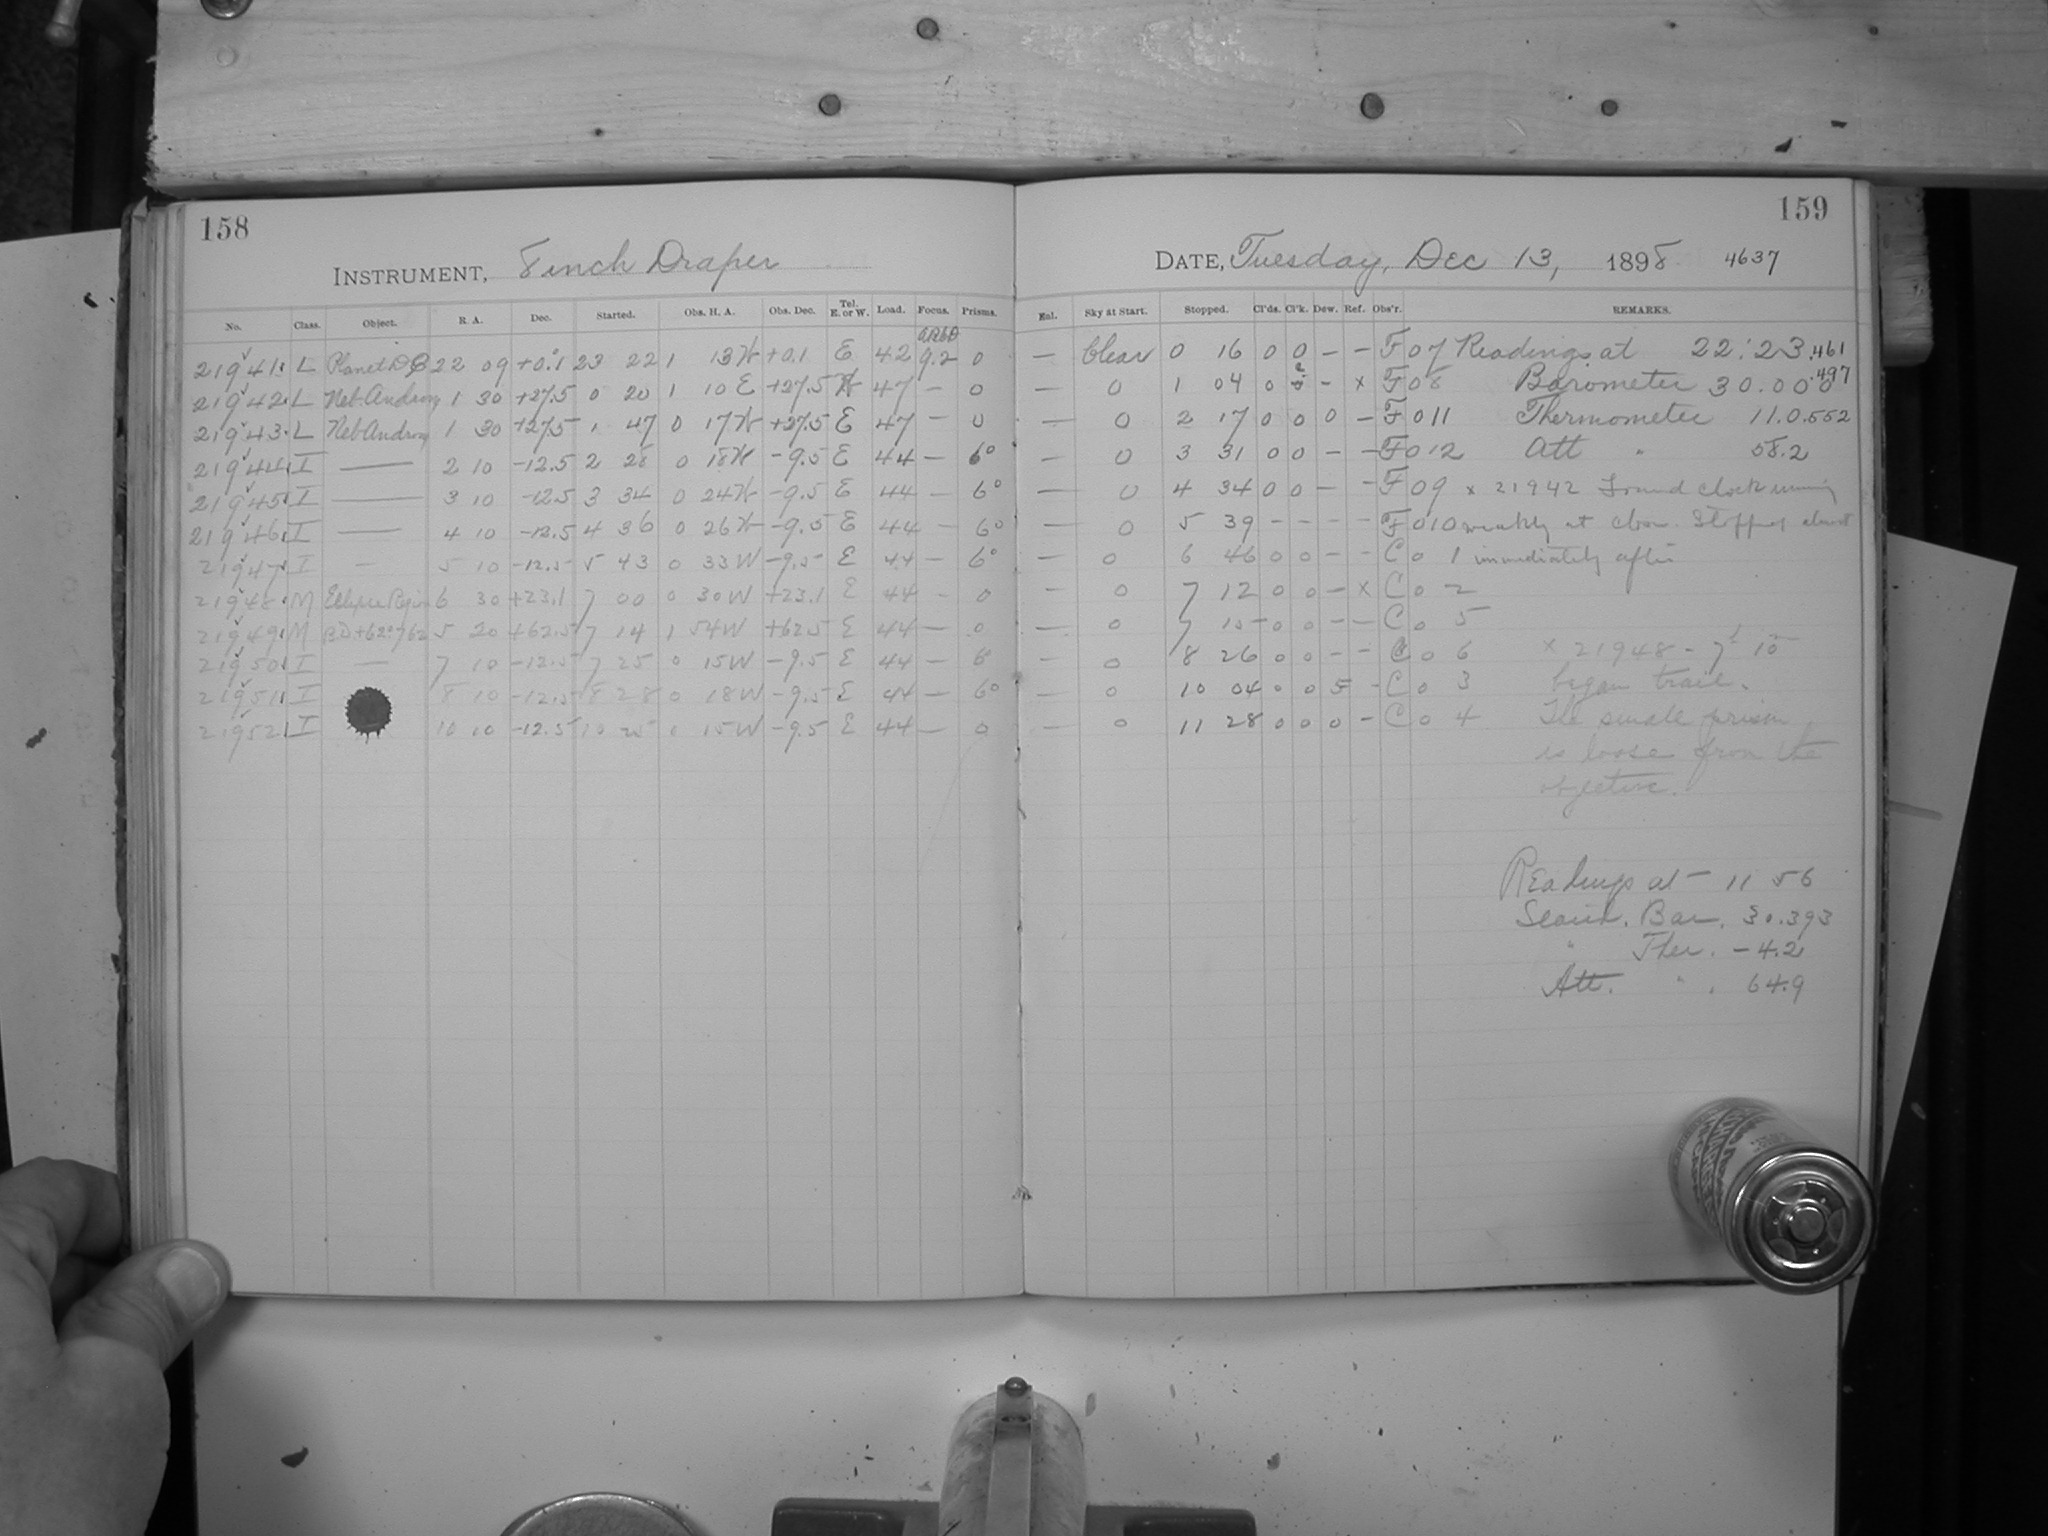 158
INSTRUMENT, 8 inch Draper
No. Class. Object. R. A. Dec. Started. Obs. H. A. Obs. Dec. Tel. E. or W. Load. Focus. Prisms.
21941 L Planet DQ 22 09 +0.1 23 22 1 13 W +0.1 E 42 9.2 0
21942 L Neb. Androm 1 30 +27.5 0 20 1 10 E +27.5 W 47 — 0
21943 L Neb Androm 1 30 +27.5 1 47 0 17 W +27.5 E 47 — 0
21944 I — 2 10 -12.5 2 28 0 18 W -9.5 E 44 — 6°
21945 I — 3 10 -12.5 3 34 0 24 W -9.5 E 44 — 6°
21946 I — 4 10 -12.5 4 36 0 26 W -9.5 E 44 — 6°
21947 I — 5 10 -12.5 5 43 0 33 W -9.5 E 44 — 6°
21948 M Eclipse Region 6 30 +23.1 7 00 0 30 W +23.1 E 44 — 0
21949 M BD+62°762 5 20 +62.5 7 14 1 54 W +62.5 E 44 — 0
21950 I — 7 10 -12.5 7 25 0 15 W -9.5 E 44 — 6°
21951 I 8 10 -12.5 8 28 0 18 W -9.5 E 44 — 6°
21952 I 10 10 -12.5 10 25 0 15 W -9.5 E 44 — 0
159
DATE, Tuesday, Dec 13, 1898 4637
Enl. Sky at Start. Stopped. Cl'ds. Cl'k. Dew. Ref. Obs'r. REMARKS.
— Clear 0 16 0 0 — — F 07 Readings at 22:23 .461
— 0 1 04 0 — x F 08 Barometer 30.000 .497
— 0 2 17 0 0 0 — F 011 Thermometer 11.0 .552
— 0 3 31 0 0 — — F 012 Att " 58.2
— 0 4 34 0 0 — — F 09 x 21942 Found clock running
— 0 5 39 — — — — F 010 weakly at close. Stopped almost
— 0 6 46 0 0 — — C 0 1 immediately after
— 0 7 12 0 0 — x C 0 2
7 15 0 0 — — C 0 5
— 0 8 26 0 0 — — C 0 6 x 21948 - 7 10
— 0 10 04 0 0 5 — C 0 3 began trail.
— 0 11 28 0 0 0 — C 0 4 The small prism
is loose from the
objective.
Readings at — 11 56
Bar. 30.393
" Ther. -4.2
Att. " . 64.9